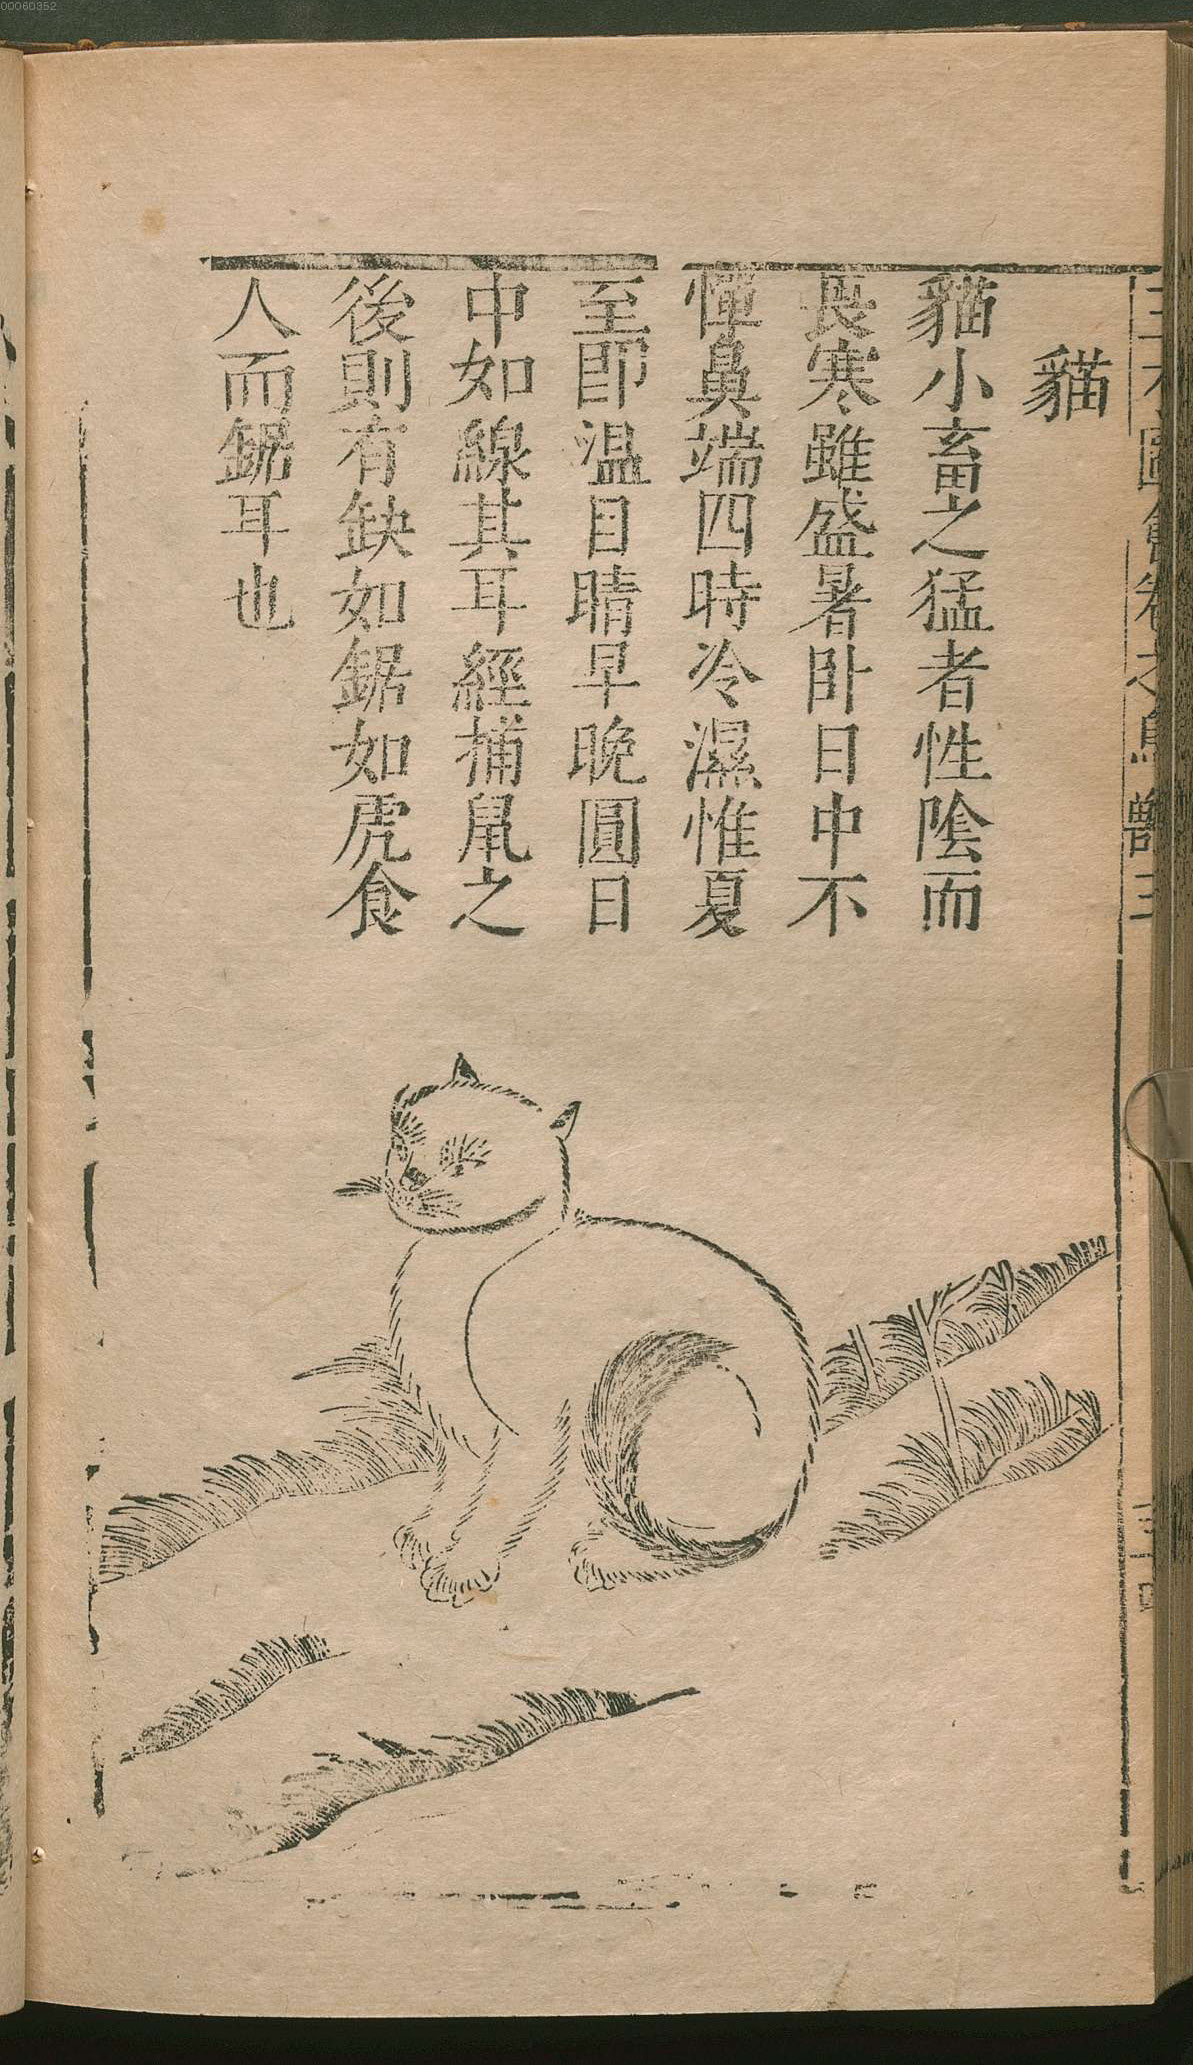 貓
貓小畜之猛者性陰而
畏寒雖盛暑卧日中不
憚鼻端四時冷濕惟夏
至即温目睛早晚圓日
中如線其耳經捕鼠之
後則有缺如鋸如虎食
人而鋸耳也
00060352